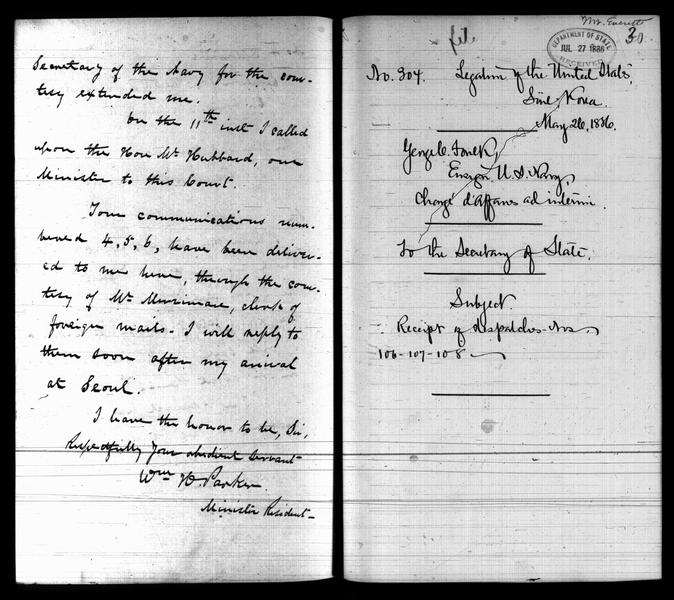 Secretary of the Navy for the cour-
tesy extended me.
On the 11th inst I called
upon the Hon Mr Hubbard, our
Minister to this Court.
Your communications num-
bered 4, 5, 6, have been deliver-
ed to me here, through the cour-
tesy of Mr Merriman, clerk of
foreign mails. I will reply to
them soon after my arrival
at Seoul.
I have the honor to be, Sir,
Respectfully Your obedient servant
Wm H. Parker
Minister Resident
Mr. Everett
30
file
DEPARTMENT OF STATE
JUL 27 1886
RECEIVED
No. 304. Legation of the United States,
Söul, Korea.
May 26, 1886.
George C. Foulk,
Ensign U.S. Navy,
Chargé d'Affaires ad interim.
To the Secretary of State.
Subject.
Receipt of dispatches Nos
106-107-108